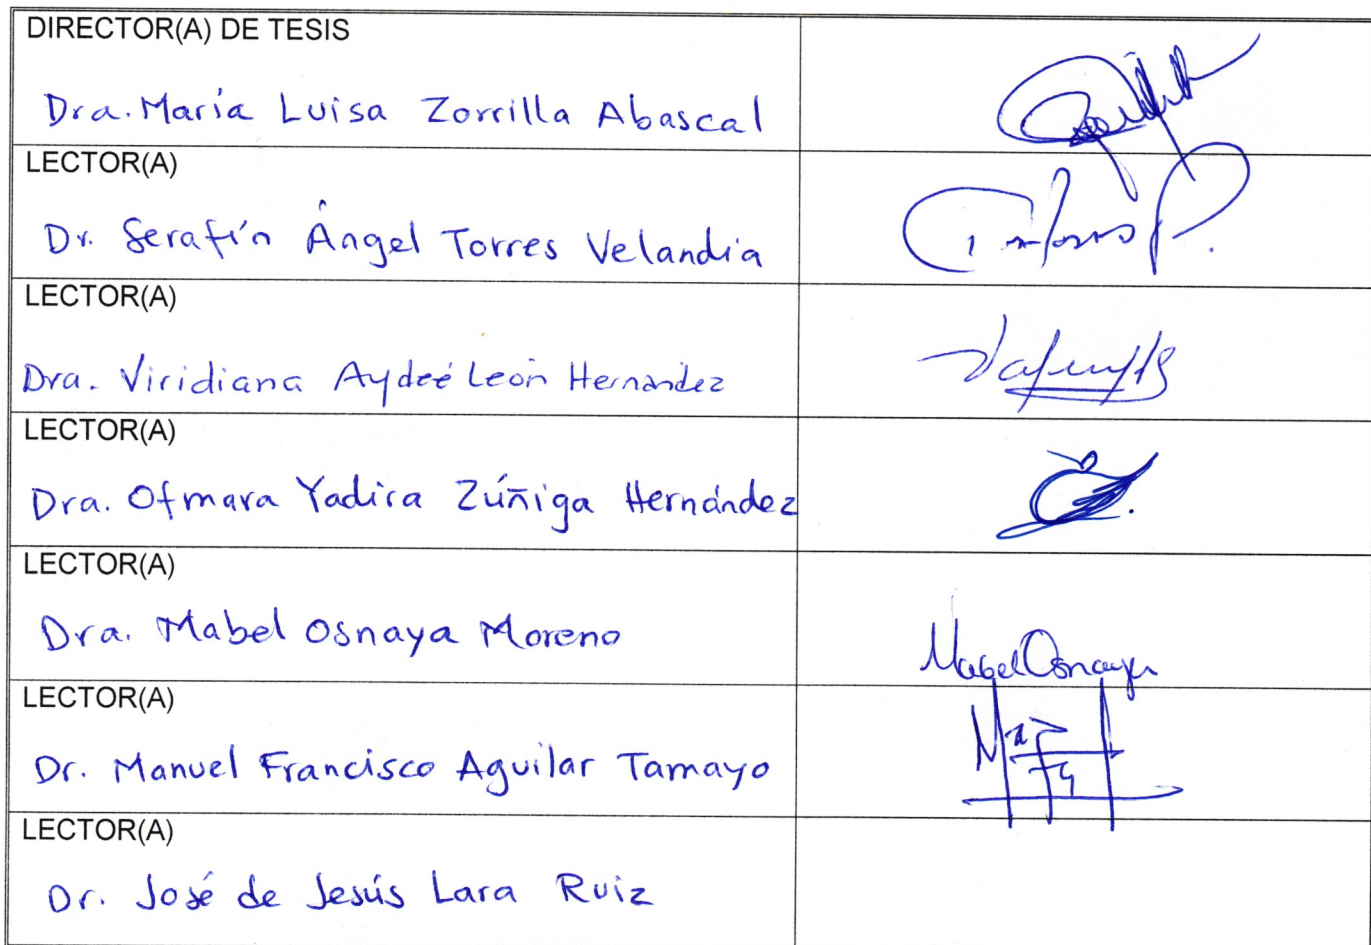 DIRECTOR(A) DE TESIS
Dra. María Luisa Zorrilla Abascal
LECTOR(A)
Dr. Serafín Ángel Torres Velandia
LECTOR(A)
Dra. Viridiana Aydeé León Hernández
LECTOR(A)
Dra. Ofmara Yadira Zúñiga Hernández
LECTOR(A)
Dra. Mabel Osnaya Moreno
Mabel Osnaya
LECTOR(A)
Dr. Manuel Francisco Aguilar Tamayo
LECTOR(A)
Dr. José de Jesús Lara Ruiz